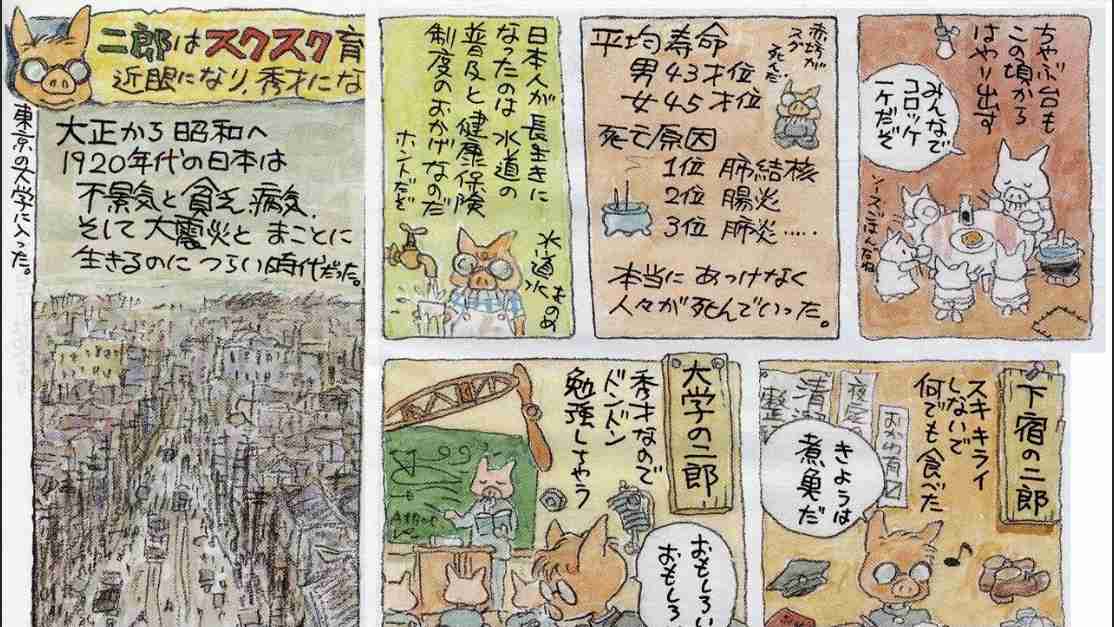 二郎はスクスク育
近眼になり、秀才にな
東京の大学に入った。
大正から昭和へ
1920年代の日本は
不景気と貧乏、病気、
そして大震災と まことに
生きるのに つらい時代だった。
日本人が長生きに
なったのは 水道の
普及と健康保険
制度のおかげなのだ
ホントだぞ
水道水
赤坊が
スグ
死んだ
平均寿命
男 43才位
女 45才位
死亡原因
1位 肺結核
2位 腸炎
3位 肺炎……
本当に あっけなく
人々が死んでいった。
ちゃぶ台も
この頃から
はやり出す
みんなで
コロッケ
一ケだぞ
大学の二郎
秀才なので
ドンドン
勉強しちゃう
おもしろい
おもしろ
下宿の二郎
スキキライ
しないで
何でも食べた
きょうは
煮魚だ